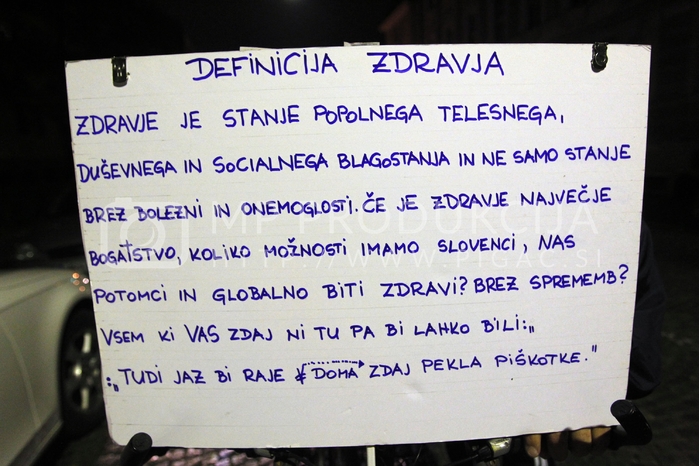 DEFINICIJA ZDRAVJA
ZDRAVJE JE STANJE POPOLNEGA TELESNEGA,
DUŠEVNEGA IN SOCIALNEGA BLAGOSTANJA IN NE SAMO STANJE
BREZ BOLEZNI IN ONEMOGLOSTI. ČE JE ZDRAVJE NAJVEČJE
BOGATSTVO, KOLIKO MOŽNOSTI IMAMO SLOVENCI, NAŠ
POTOMCI IN GLOBALNO BITI ZDRAVI? BREZ SPREMEMB?
VSEM KI VAS ZDAJ NI TU PA BI LAHKO BILI:„
:„TUDI JAZ BI RAJE DOMA ZDAJ PEKLA PIŠKOTKE."
MP PRODUKCIJA
HTTP://WWW.PIGAC.SI